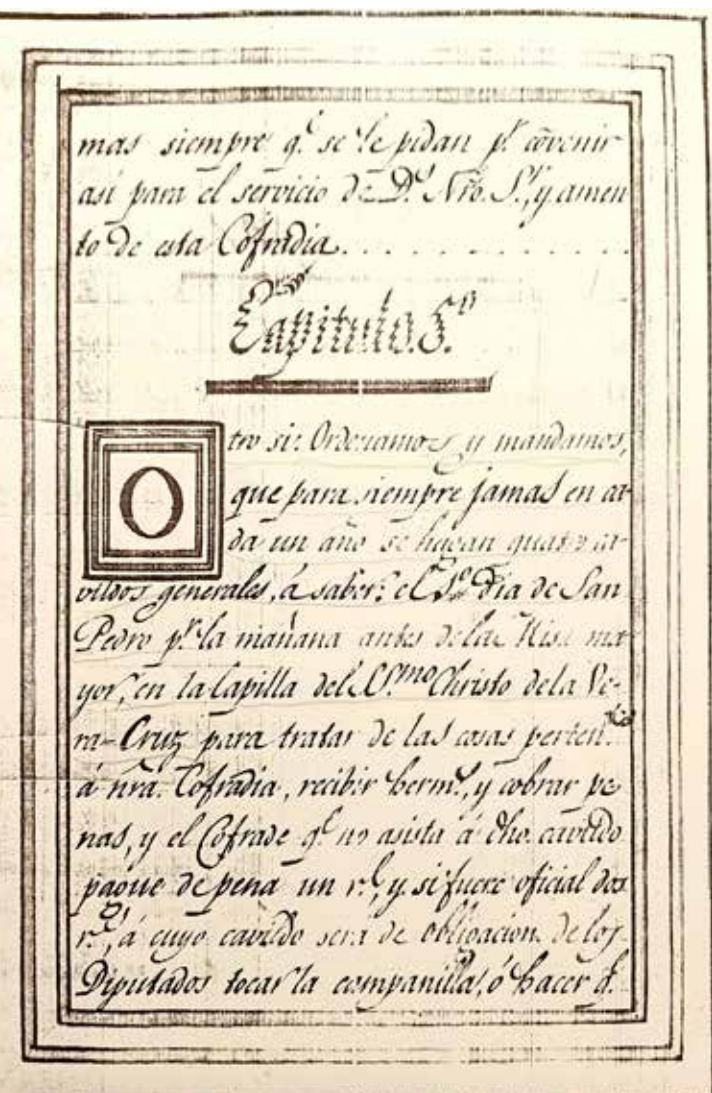 mas siempre q.e se le pidan p.r cõvenir
asi para el servicio de D.s Nro. S.r, y aumen
to de esta Cofradia . . . . . . . . . . . . .
Capitulo. 5.o
Otro si: Ordenamos y mandamos,
que para siempre jamas en ca
da un año se hagan quatro ca
vildos generales, á saber: el 1.o dia de San
Pedro p.r la mañana antes dela Misa ma
yor, en la Capilla del SS.mo Christo dela Ve-
ra-Cruz para tratar de las cosas perten.tes
á nra. Cofradia, recibir herm.s, y cobrar pe
nas, y el Cofrade q.e no asista á dho. cavildo
pague de pena un r.l, y si fuere oficial dos
r.s, á cuyo cavildo será de obligacion de los
Diputados tocar la companilla, ó hacer q.e